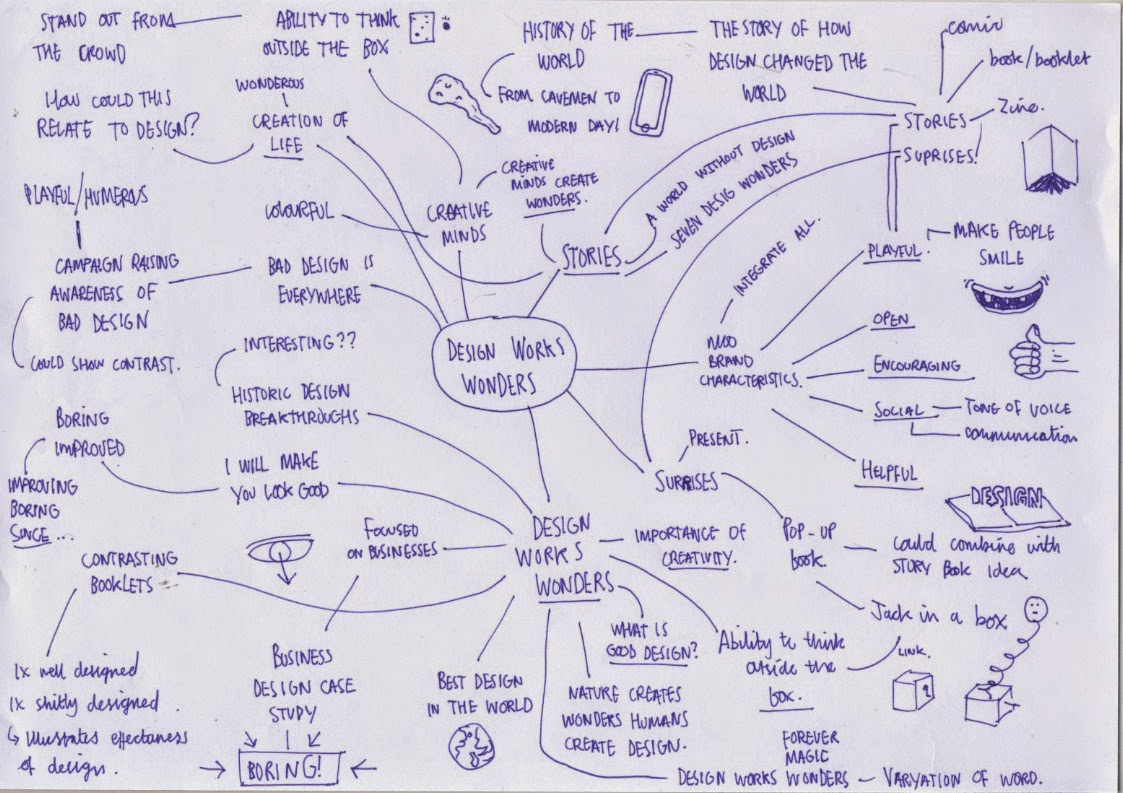 STAND OUT FROM
THE CROWD
ABILITY TO THINK
OUTSIDE THE BOX
HISTORY OF THE
WORLD
FROM CAVEMEN TO
MODERN DAY!
THE STORY OF HOW
DESIGN CHANGED THE
WORLD
comic
book/booklet
Zine.
STORIES
SUPRISES!
HOW COULD THIS
RELATE TO DESIGN?
WONDEROUS
CREATION OF
LIFE
PLAYFUL/HUMEROUS
CAMPAIGN RAISING
AWARENESS OF
BAD DESIGN
COULD SHOW CONTRAST.
COLOURFUL
BAD DESIGN IS
EVERYWHERE
CREATIVE
MINDS
CREATIVE
MINDS CREATE
WONDERS.
STORIES
A WORLD WITHOUT DESIGN
SEVEN DESIG WONDERS
INTEGRATE ALL.
PLAYFUL
MAKE PEOPLE
SMILE
OPEN
ENCOURAGING
SOCIAL
TONE OF VOICE
communication
HELPFUL
BRAND
CHARACTERISTICS.
DESIGN WORKS
WONDERS
INTERESTING??
HISTORIC DESIGN
BREAKTHROUGHS
BORING
IMPROVED
IMPROVING
BORING
SINCE...
I WILL MAKE
YOU LOOK GOOD
FOCUSED
ON BUSINESSES
CONTRASTING
BOOKLETS
1x well designed
1x shitly designed.
illustrates effectaness
of design.
BUSINESS
DESIGN CASE
STUDY
BORING!
DESIGN
WORKS
WONDERS
PRESENT.
SURPRISES
IMPORTANCE OF
CREATIVITY.
POP-UP
book.
DESIGN
Could combine with
STORY Book idea
Jack in a box
LINK.
Ability to think
outside the
box.
WHAT IS
GOOD DESIGN?
BEST DESIGN
IN THE WORLD
NATURE CREATES
WONDERS HUMANS
CREATE DESIGN.
FOREVER
MAGIC
DESIGN WORKS WONDERS
VARYATION OF WORD.